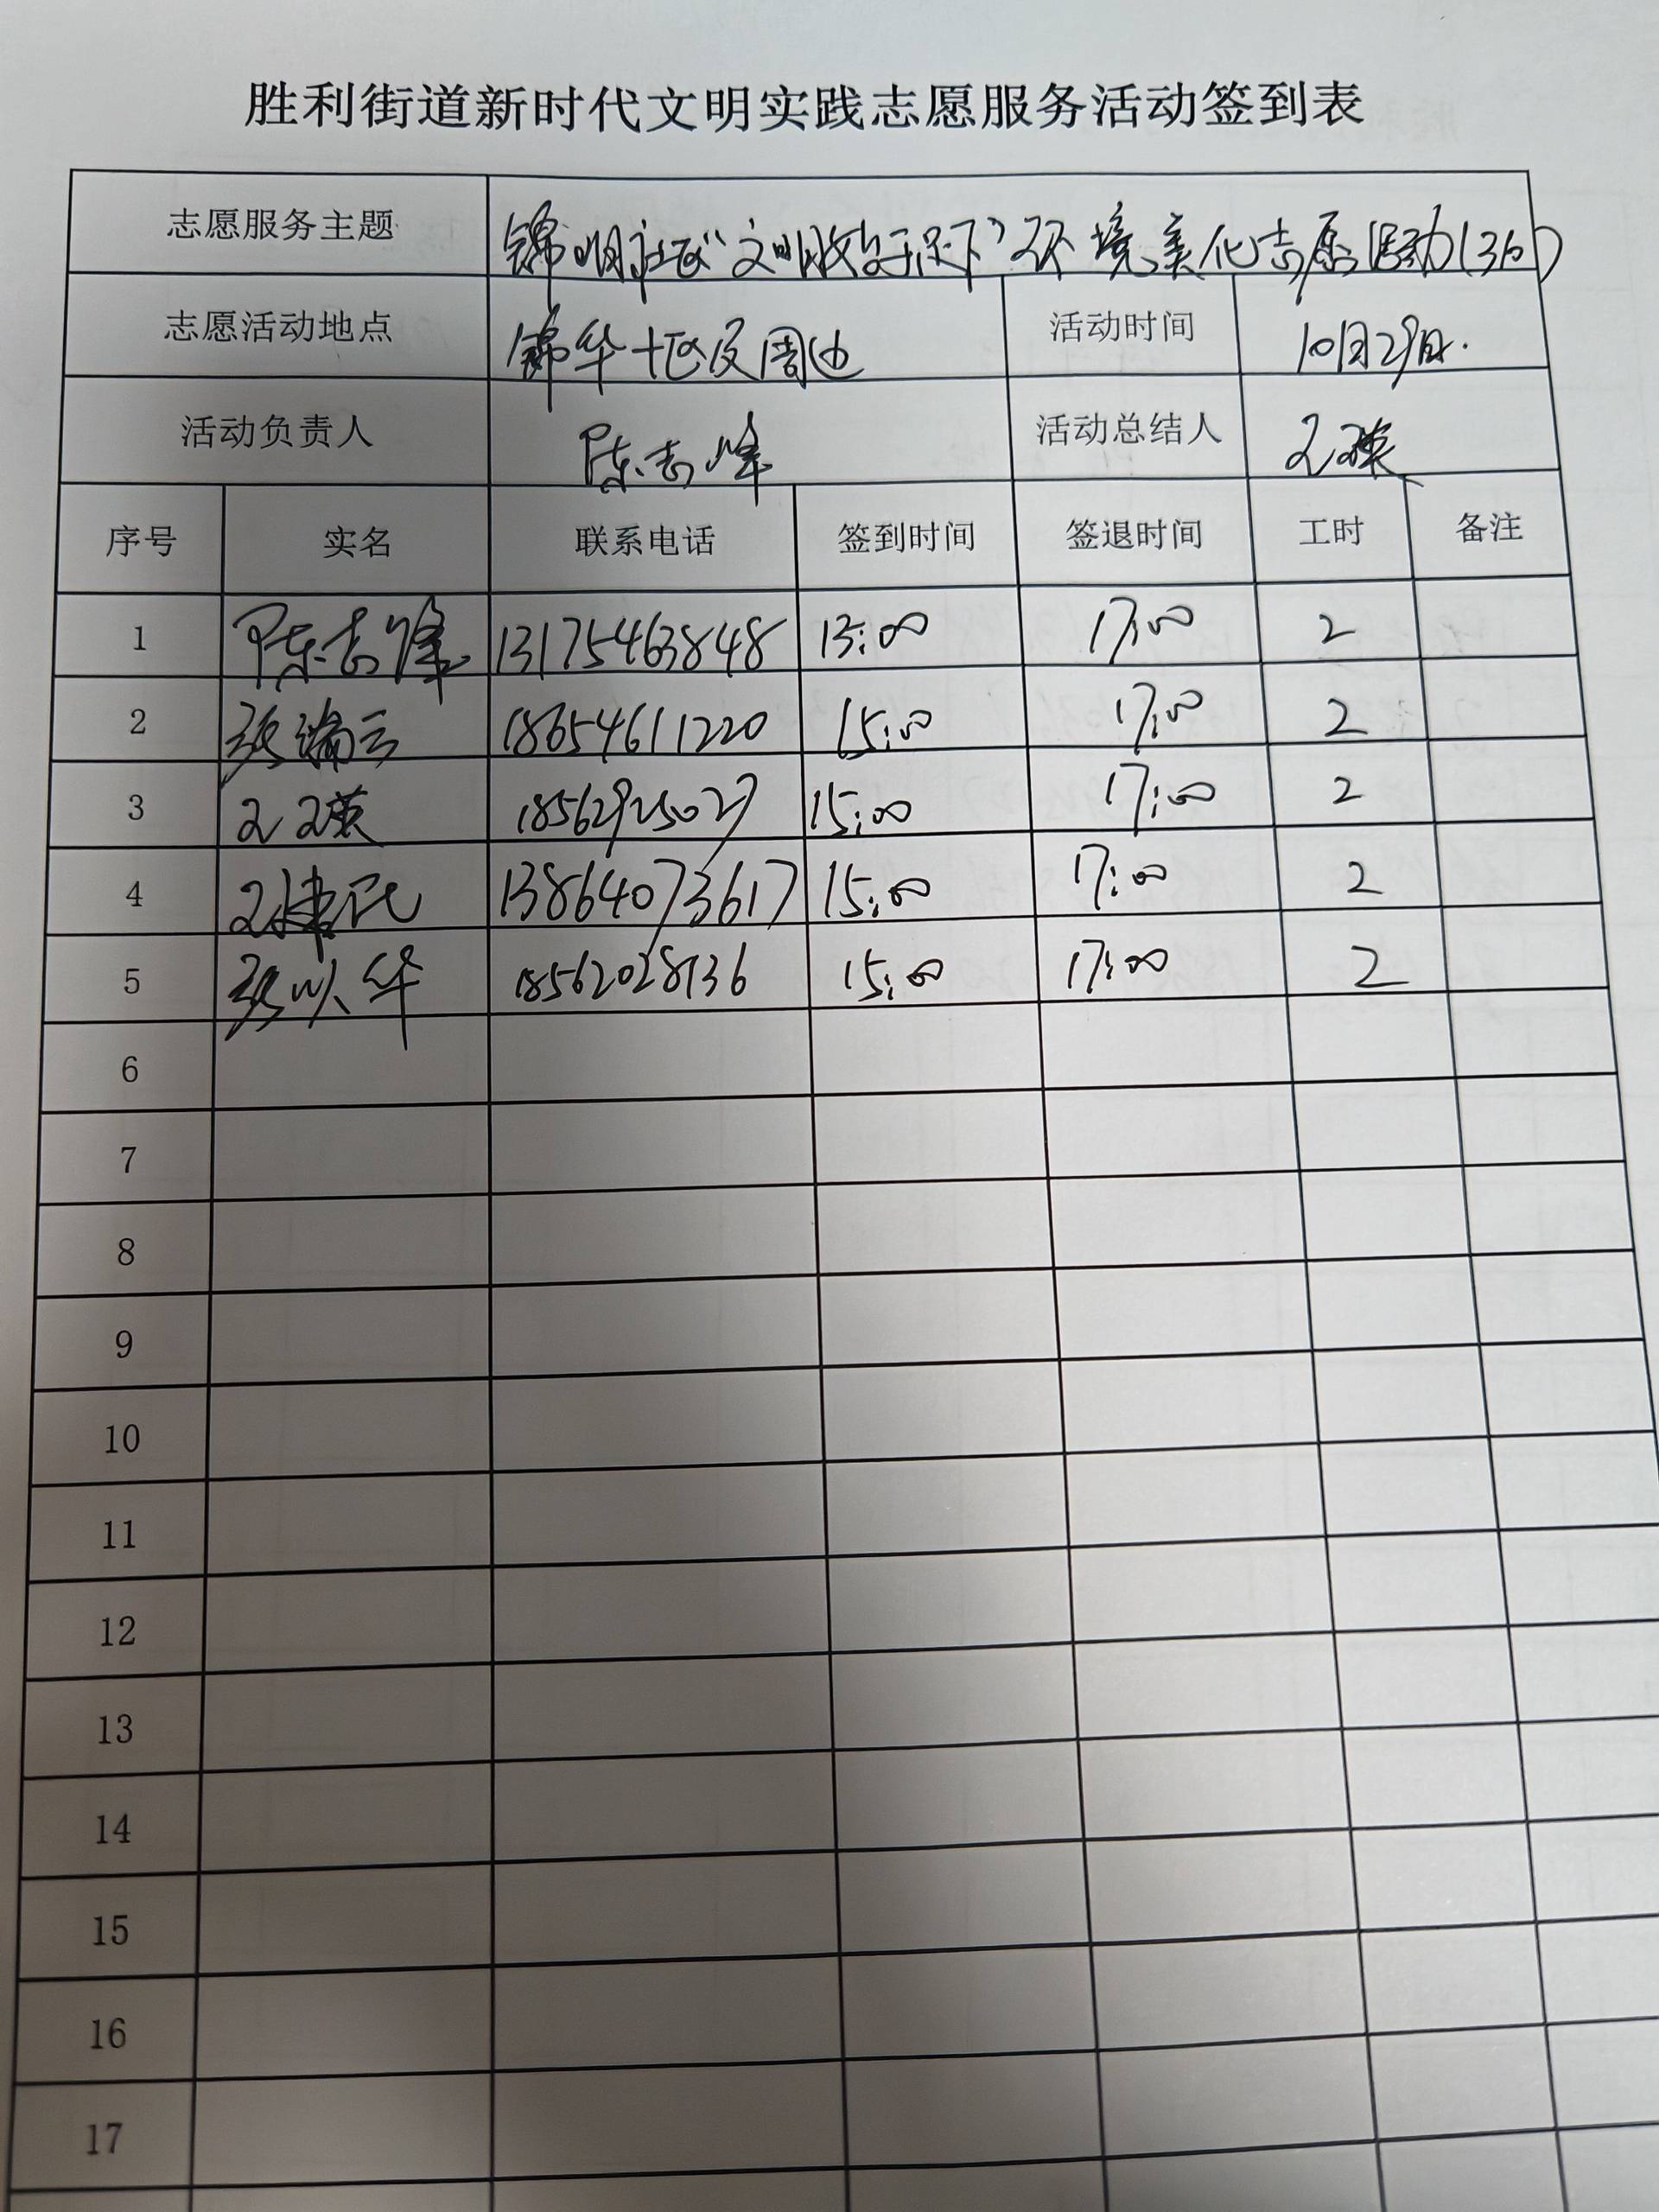 胜利街道新时代文明实践志愿服务活动签到表
志愿服务主题 锦明社区"文明始于足下"环境美化志愿活动(36)
志愿活动地点 锦华十区及周边 活动时间 10月29日.
活动负责人 陈志峰 活动总结人
序号 实名 联系电话 签到时间 签退时间 工时 备注
1 陈志峰 13175463848 15:00 17:00 2
2 张瑞云 18654611220 15:00 17:00 2
3 18562925027 15:00 17:00 2
4 王建民 13864073617 15:00 17:00 2
5 张以华 18562028136 15:00 17:00 2
6
7
8
9
10
11
12
13
14
15
16
17